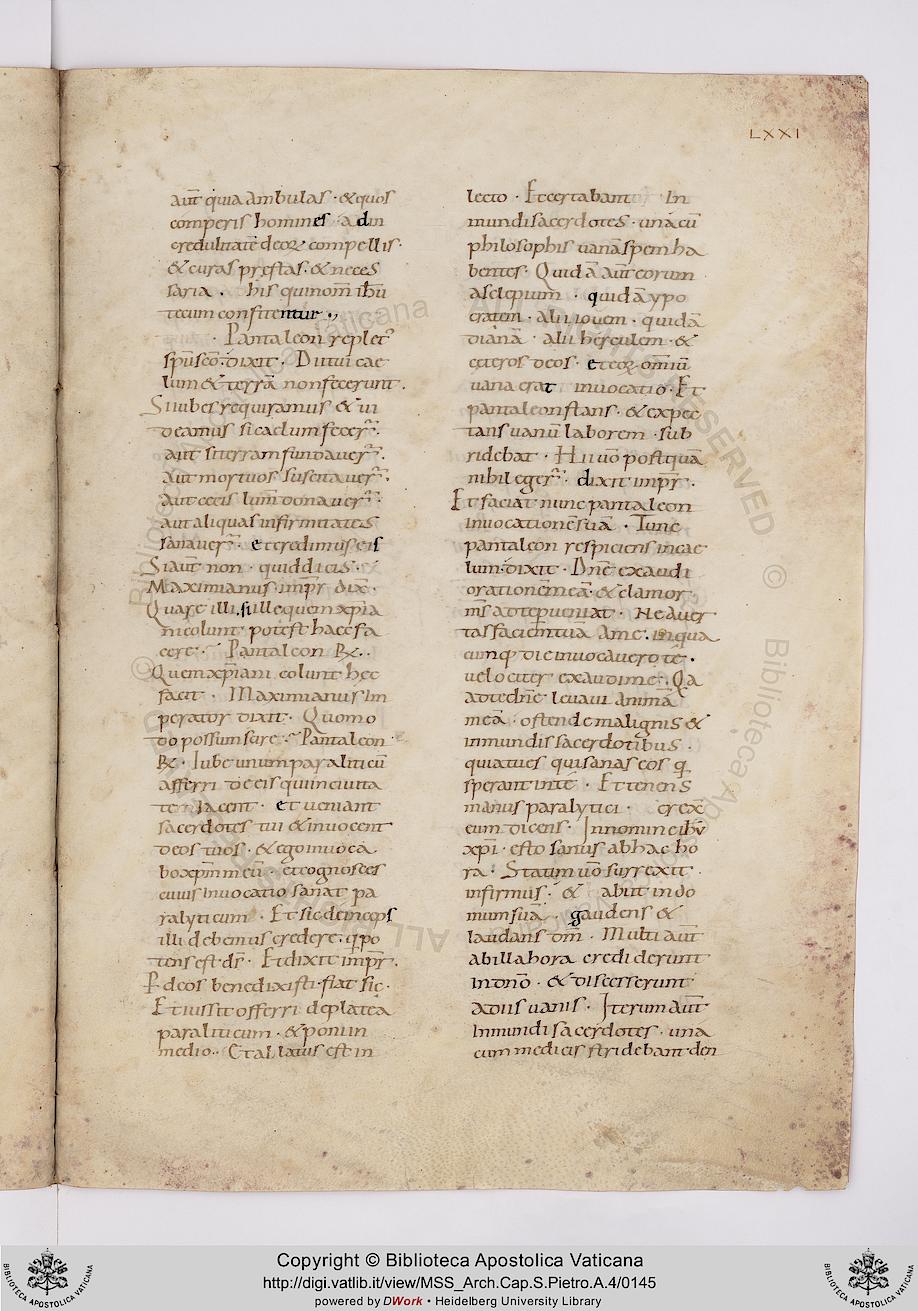 LXXI
aut̄ quia ambulas · &quos
comperis homines · ad in
credulitatē deorꝝ compellis ·
& curas pręstas · & neces
saria . his quinom̄ ih̄u
tecum confitentur ·,
· Pantaleon replet᾿
sp̄u sc̄o · dixit · Dii tui cae
lum & terrā non fecerunt .
Si iubes requiramus & ui
deamus si caelum fecer̄ ·
aut̄ si terram fundauer̄ ·
aut mortuos suscitauer̄ ·
aut cecis lum̄ donauer̄ ·
aut aliquas infirmitates
sanauer̄ · et credimus eis
Si aut̄ non · quid dicis ·
Maximianus · imp̄r · dix̄ ·
Quare ille quem xp̄ia
ni colunt · potest haec fa
cere · Pantaleon R̄ · ·
Quem xp̄iani colunt hęc
facit · Maximianus im
perator dixit · Quomo
do possum scire · Pantaleon
R̄ · Iube unum paraliticū
afferri de eis qui in ciuita
te iacent · et ueniant
sacerdotes tui & inuocent
deos tuos · & ego inuoca
bo xp̄m meū · et cognosces
cuius inuocatio sanat pa
ralyticum · Et sic deinceps
illi debemus credere · q̄ po
tens est · d̄s · Et dixit imp̄r ·
P deos benedixisti · fiat sic ·
Et iussit offerri de platea
paraliticum · & poni in
medio · · Et allatus est in
lecto · Et certabant In
mundi sacerdotes · una cū
philosophis uanā spem ha
bentes · Quidā aut̄ eorum
asclepium · quidā ypo
cratem · alii iouem · quidā
dianā · alii herculem · &
ceteros deos · et eorꝝ omniū
uana erat inuocatio · Et
pantaleon stans · & expec
tans uanū laborem · sub
ridebat · Hii uō postquā
nihil eger̄ · dixit imp̄r ·
Et faciat nunc pantaleon
inuocationē suā · Tunc
pantaleon respiciens in cae
lum · dixit · Dn̄e exaudi
orationē meā · & clamor
m̄s ad te p̄ueniat · Ne auer
tas faciem tuā a me · in qua
cumq; die inuocauero te ·
uelociter exaudi me · Qa
ad te dn̄e leuaui animā
meā · ostende malignis &
inmundis sacerdotibus ·
quia tu es qui sanas eos q̄
sperant in te · Et tenens
manus paralytici · erex̄
eum dicens · In nomine ih̄u
xp̄i · esto sanus ab hac ho
ra · Statim uō surrexit ·
infirmus · & abiit in do
mum suā · gaudens &
laudans dm̄ · Multi aut̄
ab illa hora crediderunt
in dn̄o · & discesserunt
a diis uanis · Iterum aut̄
Inmundi sacerdotes · una
cum medicis stridebant den
Copyright © Biblioteca Apostolica Vaticana
http://digi.vatlib.it/view/MSS_Arch.Cap.S.Pietro.A.4/0145
powered by DWork • Heidelberg University Library
BIBLIOTECA APOSTOLICA VATICANA
BIBLIOTECA APOSTOLICA VATICANA